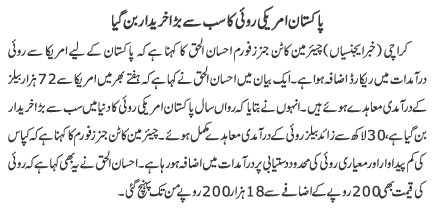 پاکستان امریکی روئی کا سب سے بڑا خریدار بن گیا
کراچی (خبر ایجنسیاں) چیئرمین کاٹن جنرز فورم احسان الحق کا کہنا ہے کہ پاکستان کے لیے امریکا سے روئی
درآمدات میں ریکارڈ اضافہ ہوا ہے۔ ایک بیان میں احسان الحق نے کہا کہ ہفتہ بھر میں امریکا سے 72 ہزار بیلز
کے درآمدی معاہدے ہوئے ہیں۔ انہوں نے بتایا کہ رواں سال پاکستان امریکی روئی کا دنیا میں سب سے بڑا خریدار
بن گیا ہے، 30 لاکھ سے زائد بیلز روئی کے درآمدی معاہدے مکمل ہوئے۔ چیئرمین کاٹن جنرز فورم کا کہنا ہے کہ کپاس
کی کم پیداوار اور معیاری روئی کی محدود دستیابی پر درآمدات میں اضافہ ہو رہا ہے۔ احسان الحق نے یہ بھی کہا ہے کہ روئی
کی قیمت بھی 200 روپے کے اضافے سے 18 ہزار 200 روپے من تک پہنچ گئی۔